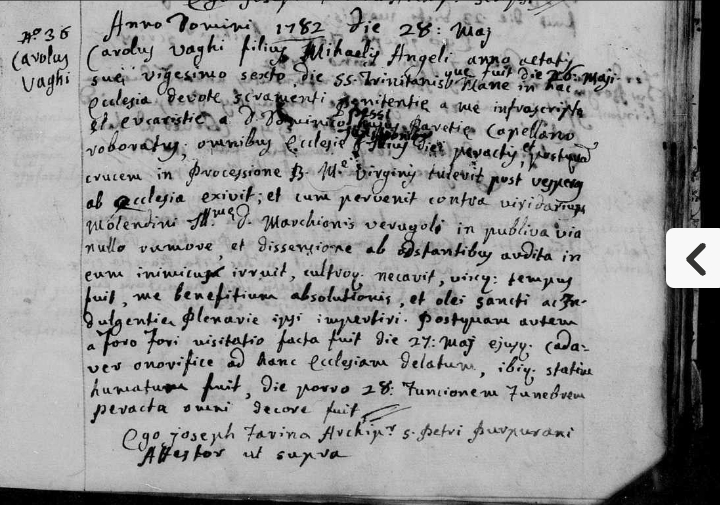 Nº 36
Carolus
Vaghi
Anno Domini 1782 die 28: Maj
Carolus Vaghi filius Mihaelis Angeli anno aetatis
suę vigesimo sexto die SS. Trinitatis que fuit die 26: Maji
mane in hac
Ecclesia devote scramenti penitentie a me infrascripto
et eucaristie a D. Dominico Capellano
roboratus; omnibus Ecclesie diei peractis, et postquam
crucem in Processione B. M.e Virginis tulerit post vesperas
ab Ecclesia exivit; et cum pervenit contra viridarium
Molendini Ill.me D. Marchionis in publica via
nullo rumore, et dissenzione ab obstantibus audita in
eum inimicus irruit, cultroq. necavit, vixq: tempus
fuit, me benefitium absolutionis, et olei sancti ac In-
dulgentie Plenarie ipsi impertiri. Postquam autem
a foro fori visitatio facta fuit die 27: Maj ejusq. Cada-
ver onorifice ad hanc Ecclesiam delatum, ibiq. statim
humatum fuit, die porro 28: funcionem funebrem
peracta omni decore fuit
Ego Joseph Farina Archipr. S. Petri
Attestor ut supra